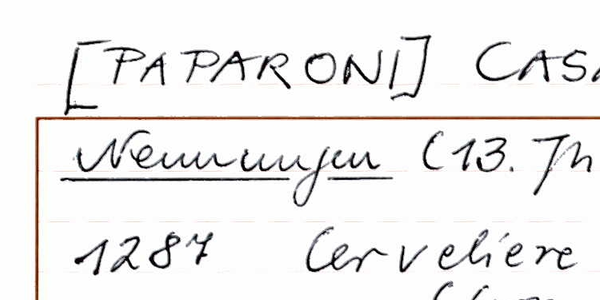 [PAPARONI] CASA
Nennungen (13. Jh
1287 Cerveliere